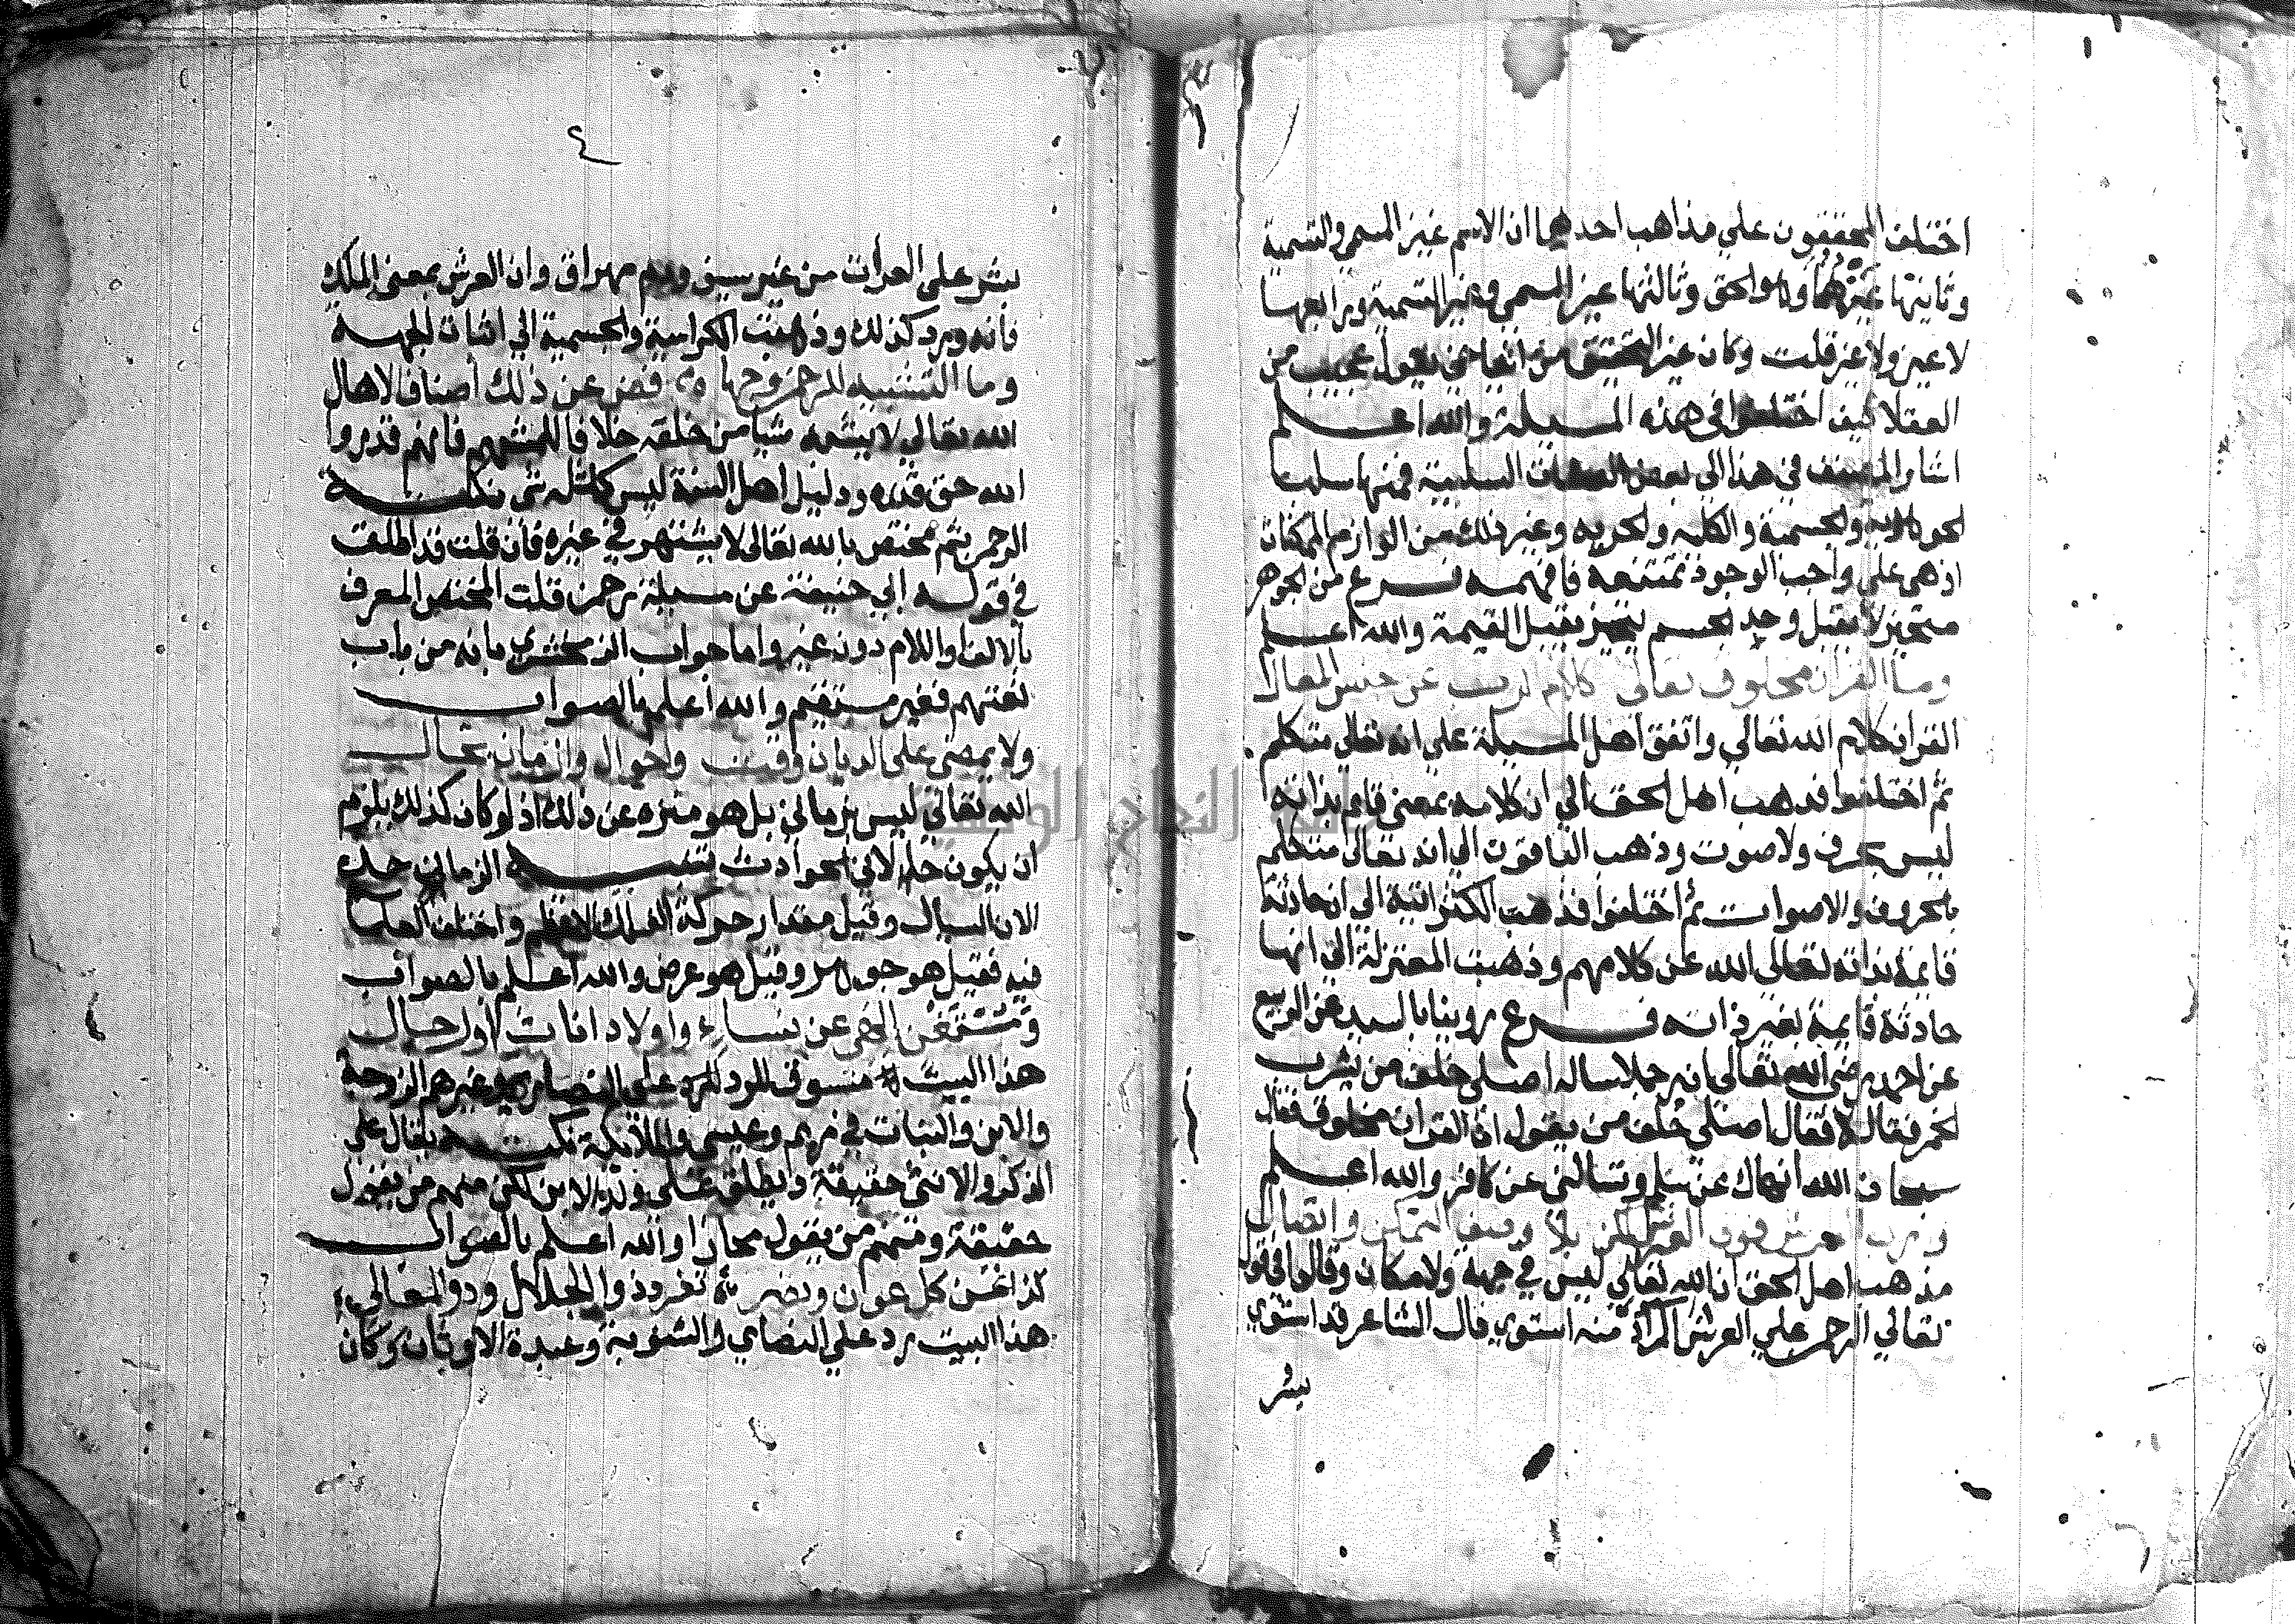 اختلف المحققون علي مذاهب احدها ان الاسم غير المسمي والتسمية
وثانيها غيرهما وهو الحق وثالثها عين المسمي وغير التسمية ورابعها
لا عين ولا غير قلت وكان عين التحقيق من اتقاحي يقول عجيب من
العقلا كيف اختلفوا في هذه المسيلة والله اعلم
اشار المصنف في هذا الي بعض الصفات السلبية فمنها سلب
الجوهرية والجسمية والكلية والجزيه وغير ذلك من لوازم الممكنات
اذ هي علي واجب الوجود ممتنعة فافهمه فرع من الجوهر
متحيز لا يقبل وحد الجسم بتحيز يقبل القيمة والله اعلم
وما القران مخلوق تعالي كلام الرب عن جنس المقال
القران كلام الله تعالي واتفق اهل المسيلة علي انه تعالي متكلم
ثم اختلفوا فذهب اهل الحق الي ان كلامه بمعني قايم بذاته
ليس بحرف ولا صوت وذهب الباقون الي انه تعالي متكلم
بالحروف والاصوات ثم اختلفوا فذهب الكرامية الي انها حادثة
قايمة بذاته تعالي الله عن كلامهم وذهبت المعتزلة الي انها
حادثة قايمة بغير ذاته فرع روينا بالسند عن الربيع
عن احمد رضي الله تعالي ان رجلا ساله اصلي خلف من يشرب
الخمر فقال لا فقال اصلي خلف من يقول ان القران مخلوق فقال
سبحان الله انهاك عن مسلم وتسالني عن كافر والله اعلم
ورب العرش فوق العرش لكن بلا وصف التمكن واتصال
مذهب اهل الحق ان الله تعالي ليس في جهة ولا مكان وقالوا في قوله
تعالي الرحمن علي العرش المراد منه استوي قال الشاعر قد استوي
بشر
٤
بشر علي العراق من غير سيف ودم مهراق وان العرش بمعني الملك
فانه ورد كذلك وذهبت الكرامية والجسمية الي اثبات الجهة
وما التشبيه للرحمن وجها فصن عن ذلك أصناف الاهال
الله تعالي لا يشبه شيا من خلقه خلافا للمشبهه فانهم ما قدروا
الله حق قدره ودليل اهل السنة ليس كمثله شي نكتة
الرحمن اسم مختص بالله تعالي لا يشتهر في غيره فان قلت قد اطلقت
في قوله ابي حنيفة عن مسيلة رحمن قلت المختص المعرف
بالالف واللام دون غيره واما جواب الزمخشري بانه من باب
تعنتهم فغير مستقيم والله اعلم بالصواب
ولا يمضي علي الديان وقت واحوال وازمان بحال
الله تعالي ليس بزماني بل هو منزه عن ذلك اذ لو كان كذلك يلزم
ان يكون حالا في الحوادث تنبيه الزمان حد
الان السيال وقيل مقدار حركة الفلك الاعظم واختلف العلما
فيه فقيل هو جوهر وقيل هو عرض والله اعلم بالصواب
ومستغن الهي عن نساء واولاد اناث أو رجال
هذا البيت مسوق للرد علي النصاري وغيرهم الزوجة
والابن والبنات في مريم وعيسي والملائكة نكتة يقال علي
الذكر والانثي حقيقة ويطلق علي ولد الابن لكن منهم من يقول
حقيقة ومنهم من يقول مجازا والله اعلم بالصواب
كذا عن كل عون ونصر تفرد ذو الجلال وذو المعالي
هذا البيت رد علي النصاري والثنوية وعبدة الاوثان وكان